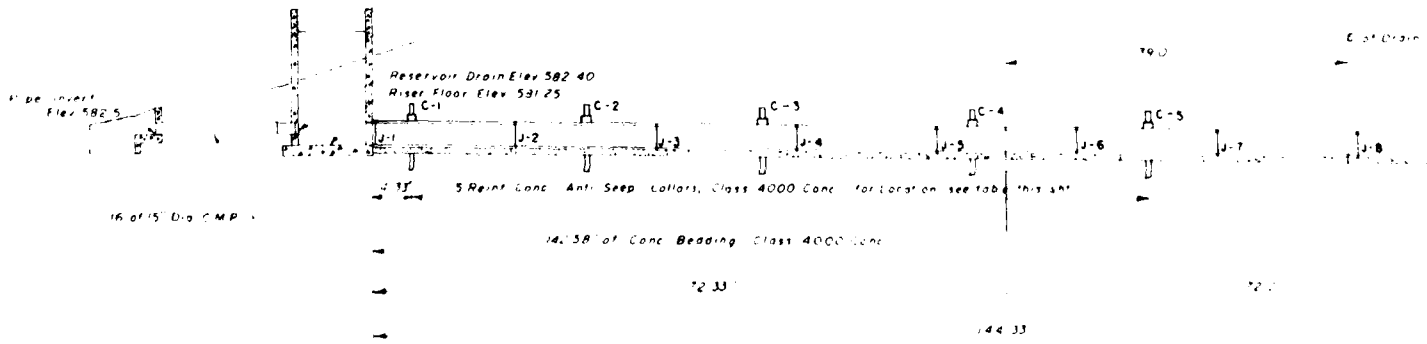 39.0
of Drain
Reservoir Drain Elev 582 40
Riser Floor Elev 581 25
Pipe Invert
Elev 582.5
C-1
C-2
C-3
C-4
C-5
J-1
J-2
J-3
J-4
J-5
J-6
J-7
J-8
4.33'
5 Reint Conc Anti Seep Collars, Class 4000 Conc for Location see table this sht
16 of 15" Dia C.M.P.
142.58' of Conc Bedding Class 4000 Conc
72 33'
144 33